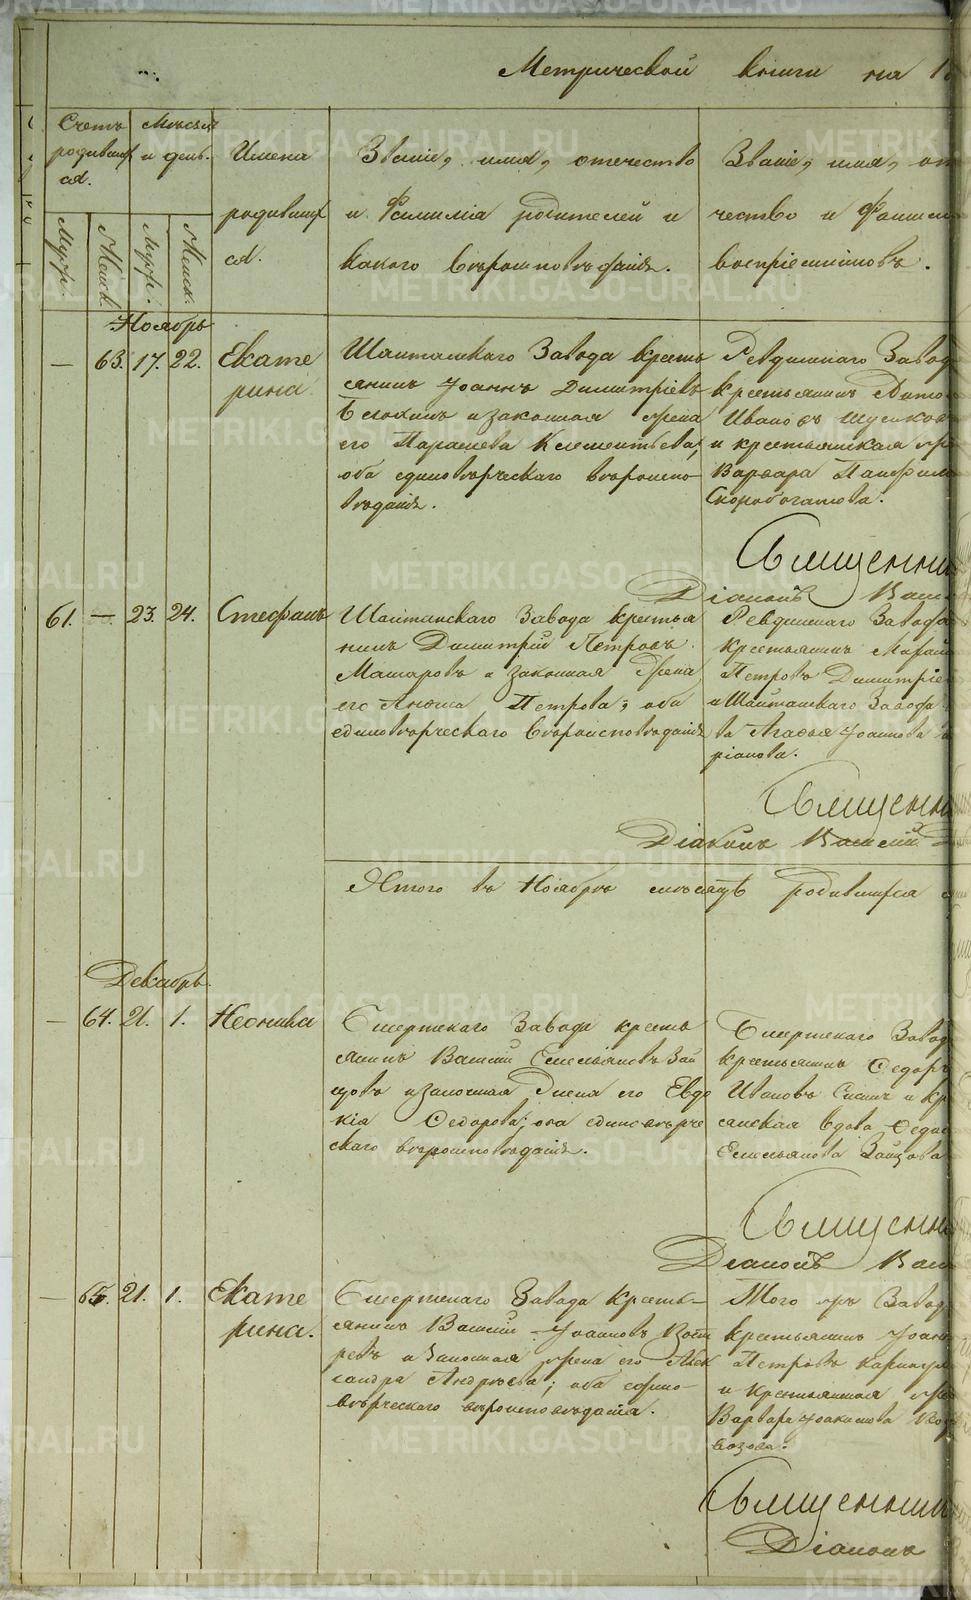 Метрической книги на 1
Счетъ родившихся.
Мѣсяцъ и день.
Имена родившихся.
Званіе, имя, отечество
и Фамилія родителей и
какого вѣроисповѣданія.
Званіе, имя, от
чество и Фамил
воспріемниковъ.
Муж.
Женск.
Муж.
Женск.
Ноябрь
— 63. 17. 22. Екате
рина
Шайтанскаго Завода кресть
янинъ Іоаннъ Димитріевъ
и законная жена
его Параскева Клементьева,
оба единовѣрческаго вѣроиспо-
вѣданія.
Ревдинскаго Завод
крестьянинъ
Ивановъ
и крестьянская
Варвара Панфило
Скоробогатова.
Священни
Діаконъ Васи
61. — 23. 24. Стефанъ
Шайтанскаго Завода крестья
нинъ Димитрій Петровъ
Макаровъ и законная жена
его Анѳиса Петрова; оба
единовѣрческаго вѣроисповѣданія
Ревдинскаго Завода
крестьянинъ
Петровъ Димитріе
и Шайтанскаго Завода
ва Агаѳья Іоаннова
ріанова.
Священн
Діаконъ Василій
Итого въ Ноябрѣ мѣсяцѣ родившихся
Декабрь.
— 64. 21. 1. Неонила
Бисертскаго Завода кресть
янинъ Василій Емельяновъ Зай
цовъ и законная жена его Евдо
кія Ѳедорова; оба единовѣрче
скаго вѣроисповѣданія.
Бисертскаго Завод
крестьянинъ Ѳедоръ
Ивановъ и кр
янская вдова
Емельянова Зайцова
Священн
Діаконъ Вас
— 65. 21. 1. Екате
рина.
Бисертскаго Завода кресть-
янинъ Василій Іоанновъ
ревъ и законная жена его Алек
сандра Андреева; оба едино-
вѣрческаго вѣроисповѣданія.
Того жъ Завод
крестьянинъ Іоан
Петровъ
и крестьянская
Варвара Іоакимова
Священни
Діаконъ
METRIKI.GASO-URAL.RU